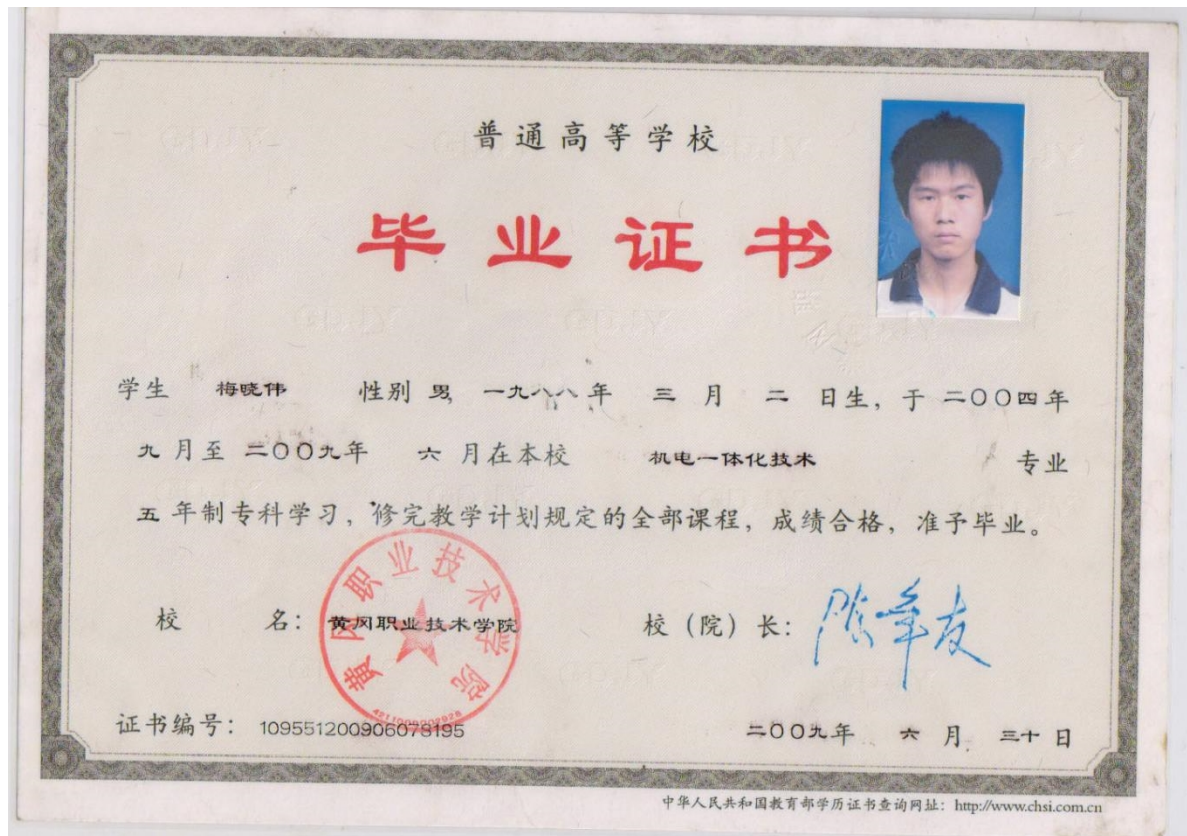 普通高等学校
毕业证书
学生 梅晓伟 性别 男 一九八八年 三月 二日生，于二〇〇四年
九月至二〇〇九年 六月在本校 机电一体化技术 专业
五年制专科学习，修完教学计划规定的全部课程，成绩合格，准予毕业。
黄冈职业技术学院
校 名：黄冈职业技术学院 校（院）长：
证书编号：109551200906078195 二〇〇九年 六月 三十日
中华人民共和国教育部学历证书查询网址：http://www.chsi.com.cn